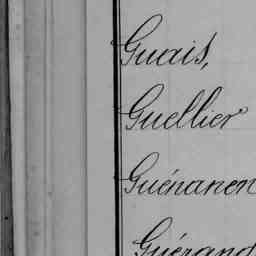 Guais,
Guellier
Guénanen
Guérand